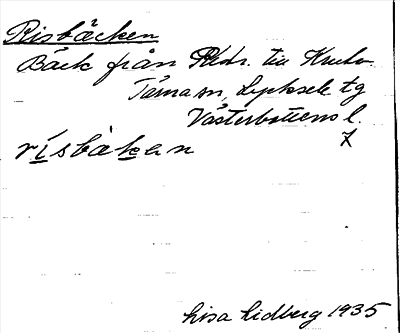 Risbäcken
Bäck från till
Tärna sn, Lycksele tg
Västerbottens l.
risbäken
Lisa Lidberg 1935